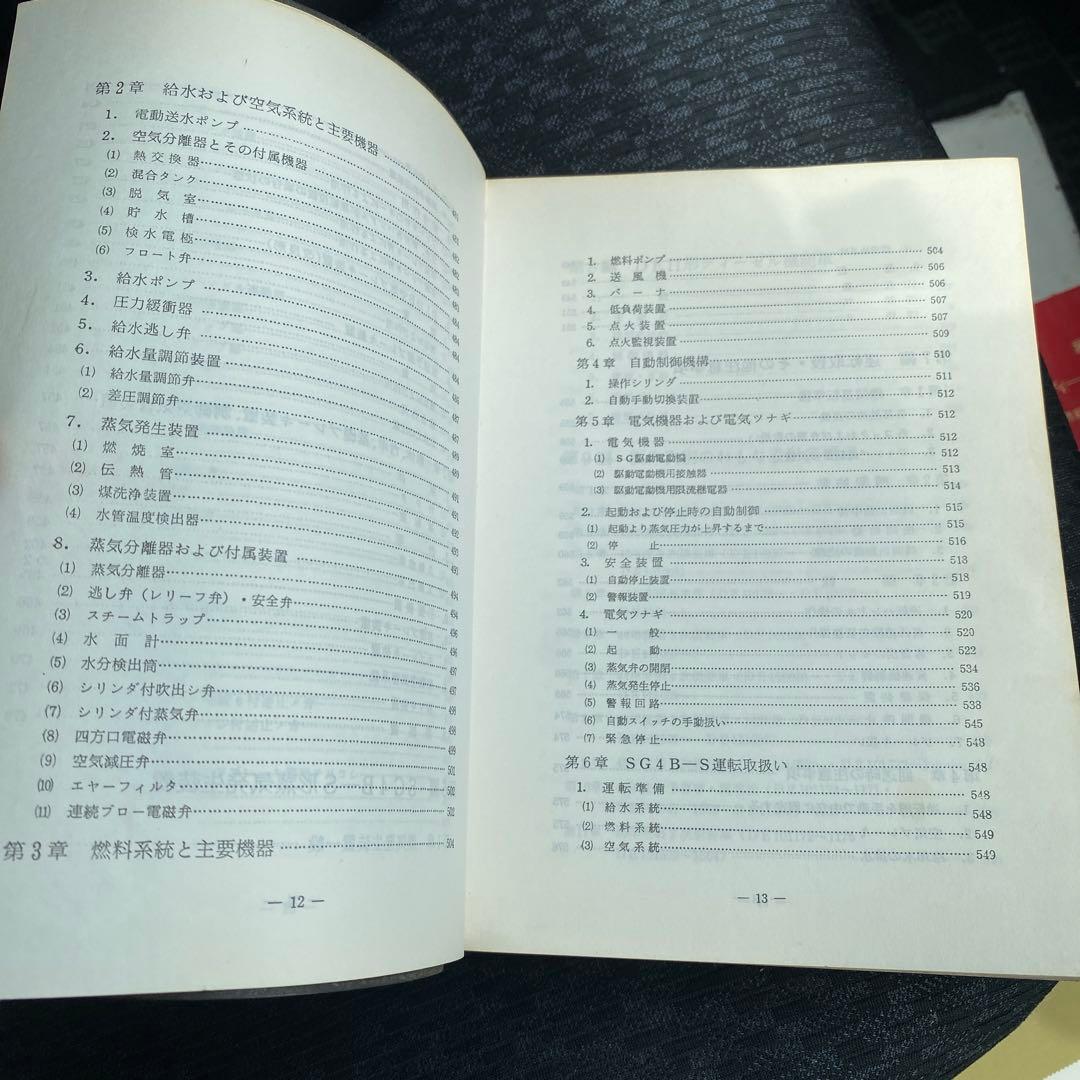 第2章 給水および空気系統と主要機器
1. 電動送水ポンプ
2. 空気分離器とその付属機器
(1) 熱交換器
(2) 混合タンク
(3) 脱気室
(4) 貯水槽
(5) 検水電極
(6) フロート弁
3. 給水ポンプ
4. 圧力緩衝器
5. 給水逃し弁
6. 給水量調節装置
(1) 給水量調節弁
(2) 差圧調節弁
7. 蒸気発生装置
(1) 燃焼室
(2) 伝熱管
(3) 煤洗浄装置
(4) 水管温度検出器
8. 蒸気分離器および付属装置
(1) 蒸気分離器
(2) 逃し弁(レリーフ弁)・安全弁 494
(3) スチームトラップ
(4) 水面計 496
(5) 水分検出筒 497
(6) シリンダ付吹出シ弁 497
(7) シリンダ付蒸気弁 498
(8) 四方口電磁弁 499
(9) 空気減圧弁 501
(10) エヤーフィルタ 502
(11) 連続ブロー電磁弁 502
第3章 燃料系統と主要機器 504
— 12 —
1. 燃料ポンプ 504
2. 送風機 506
3. バーナ 506
4. 低負荷装置 507
5. 点火装置 507
6. 点火監視装置 509
第4章 自動制御機構 510
1. 操作シリンダ 511
2. 自動手動切換装置 512
第5章 電気機器および電気ツナギ 512
1. 電気機器 512
(1) SG駆動電動機 512
(2) 駆動電動機用接触器 513
(3) 駆動電動機用限流継電器 514
2. 起動および停止時の自動制御 515
(1) 起動より蒸気圧力が上昇するまで 515
(2) 停止 516
3. 安全装置 518
(1) 自動停止装置 518
(2) 警報装置 519
4. 電気ツナギ 520
(1) 一般 520
(2) 起動 522
(3) 蒸気弁の開閉 534
(4) 蒸気発生停止 536
(5) 警報回路 538
(6) 自動スイッチの手動扱い 545
(7) 緊急停止 548
第6章 SG4B—S運転取扱い 548
1. 運転準備 548
(1) 給水系統 548
(2) 燃料系統 549
(3) 空気系統 549
— 13 —